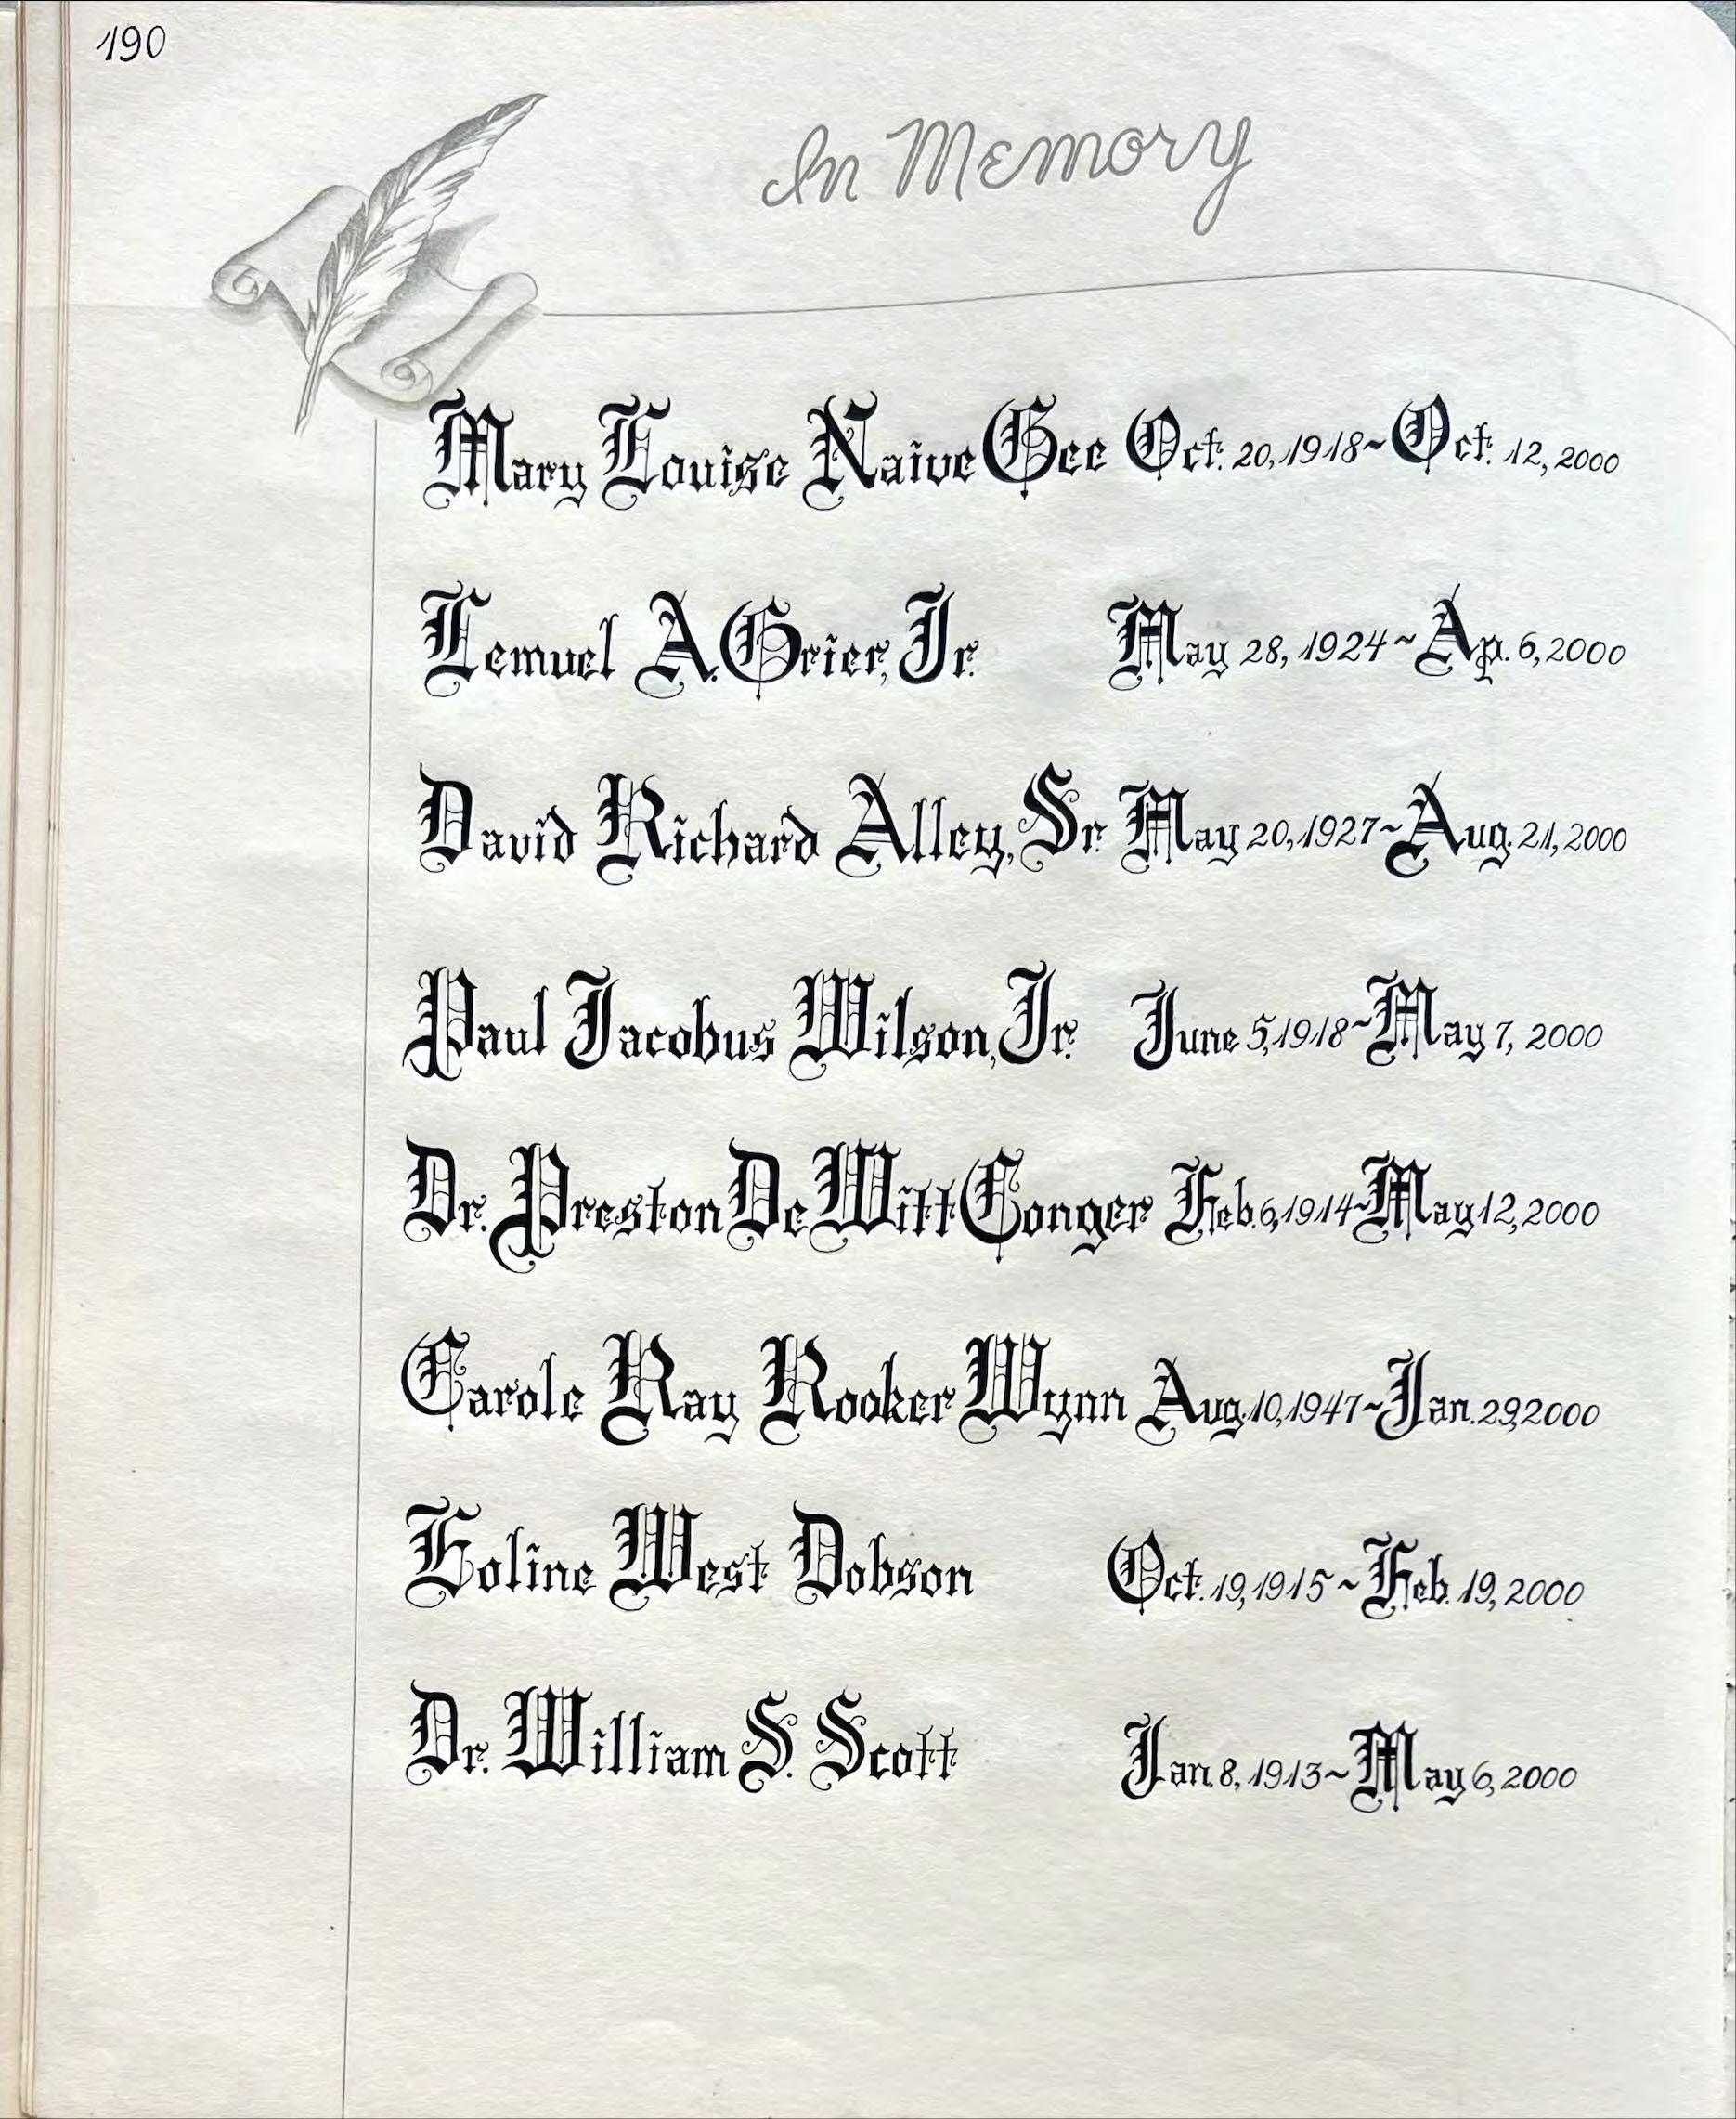 190
In Memory
Mary Louise Naive Gee Oct. 20, 1918~Oct. 12, 2000
Lemuel A. Grier, Jr. May 28, 1924~Ap. 6, 2000
David Richard Alley, Sr. May 20, 1927~Aug. 21, 2000
Paul Jacobus Wilson, Jr. June 5, 1918~May 7, 2000
Dr. Preston De Witt Conger Feb. 6, 1914~May 12, 2000
Carole Ray Rooker Wynn Aug. 10, 1947~Jan. 29, 2000
West Dobson Oct. 19, 1915~Feb. 19, 2000
Dr. William S. Scott Jan. 8, 1913~May 6, 2000